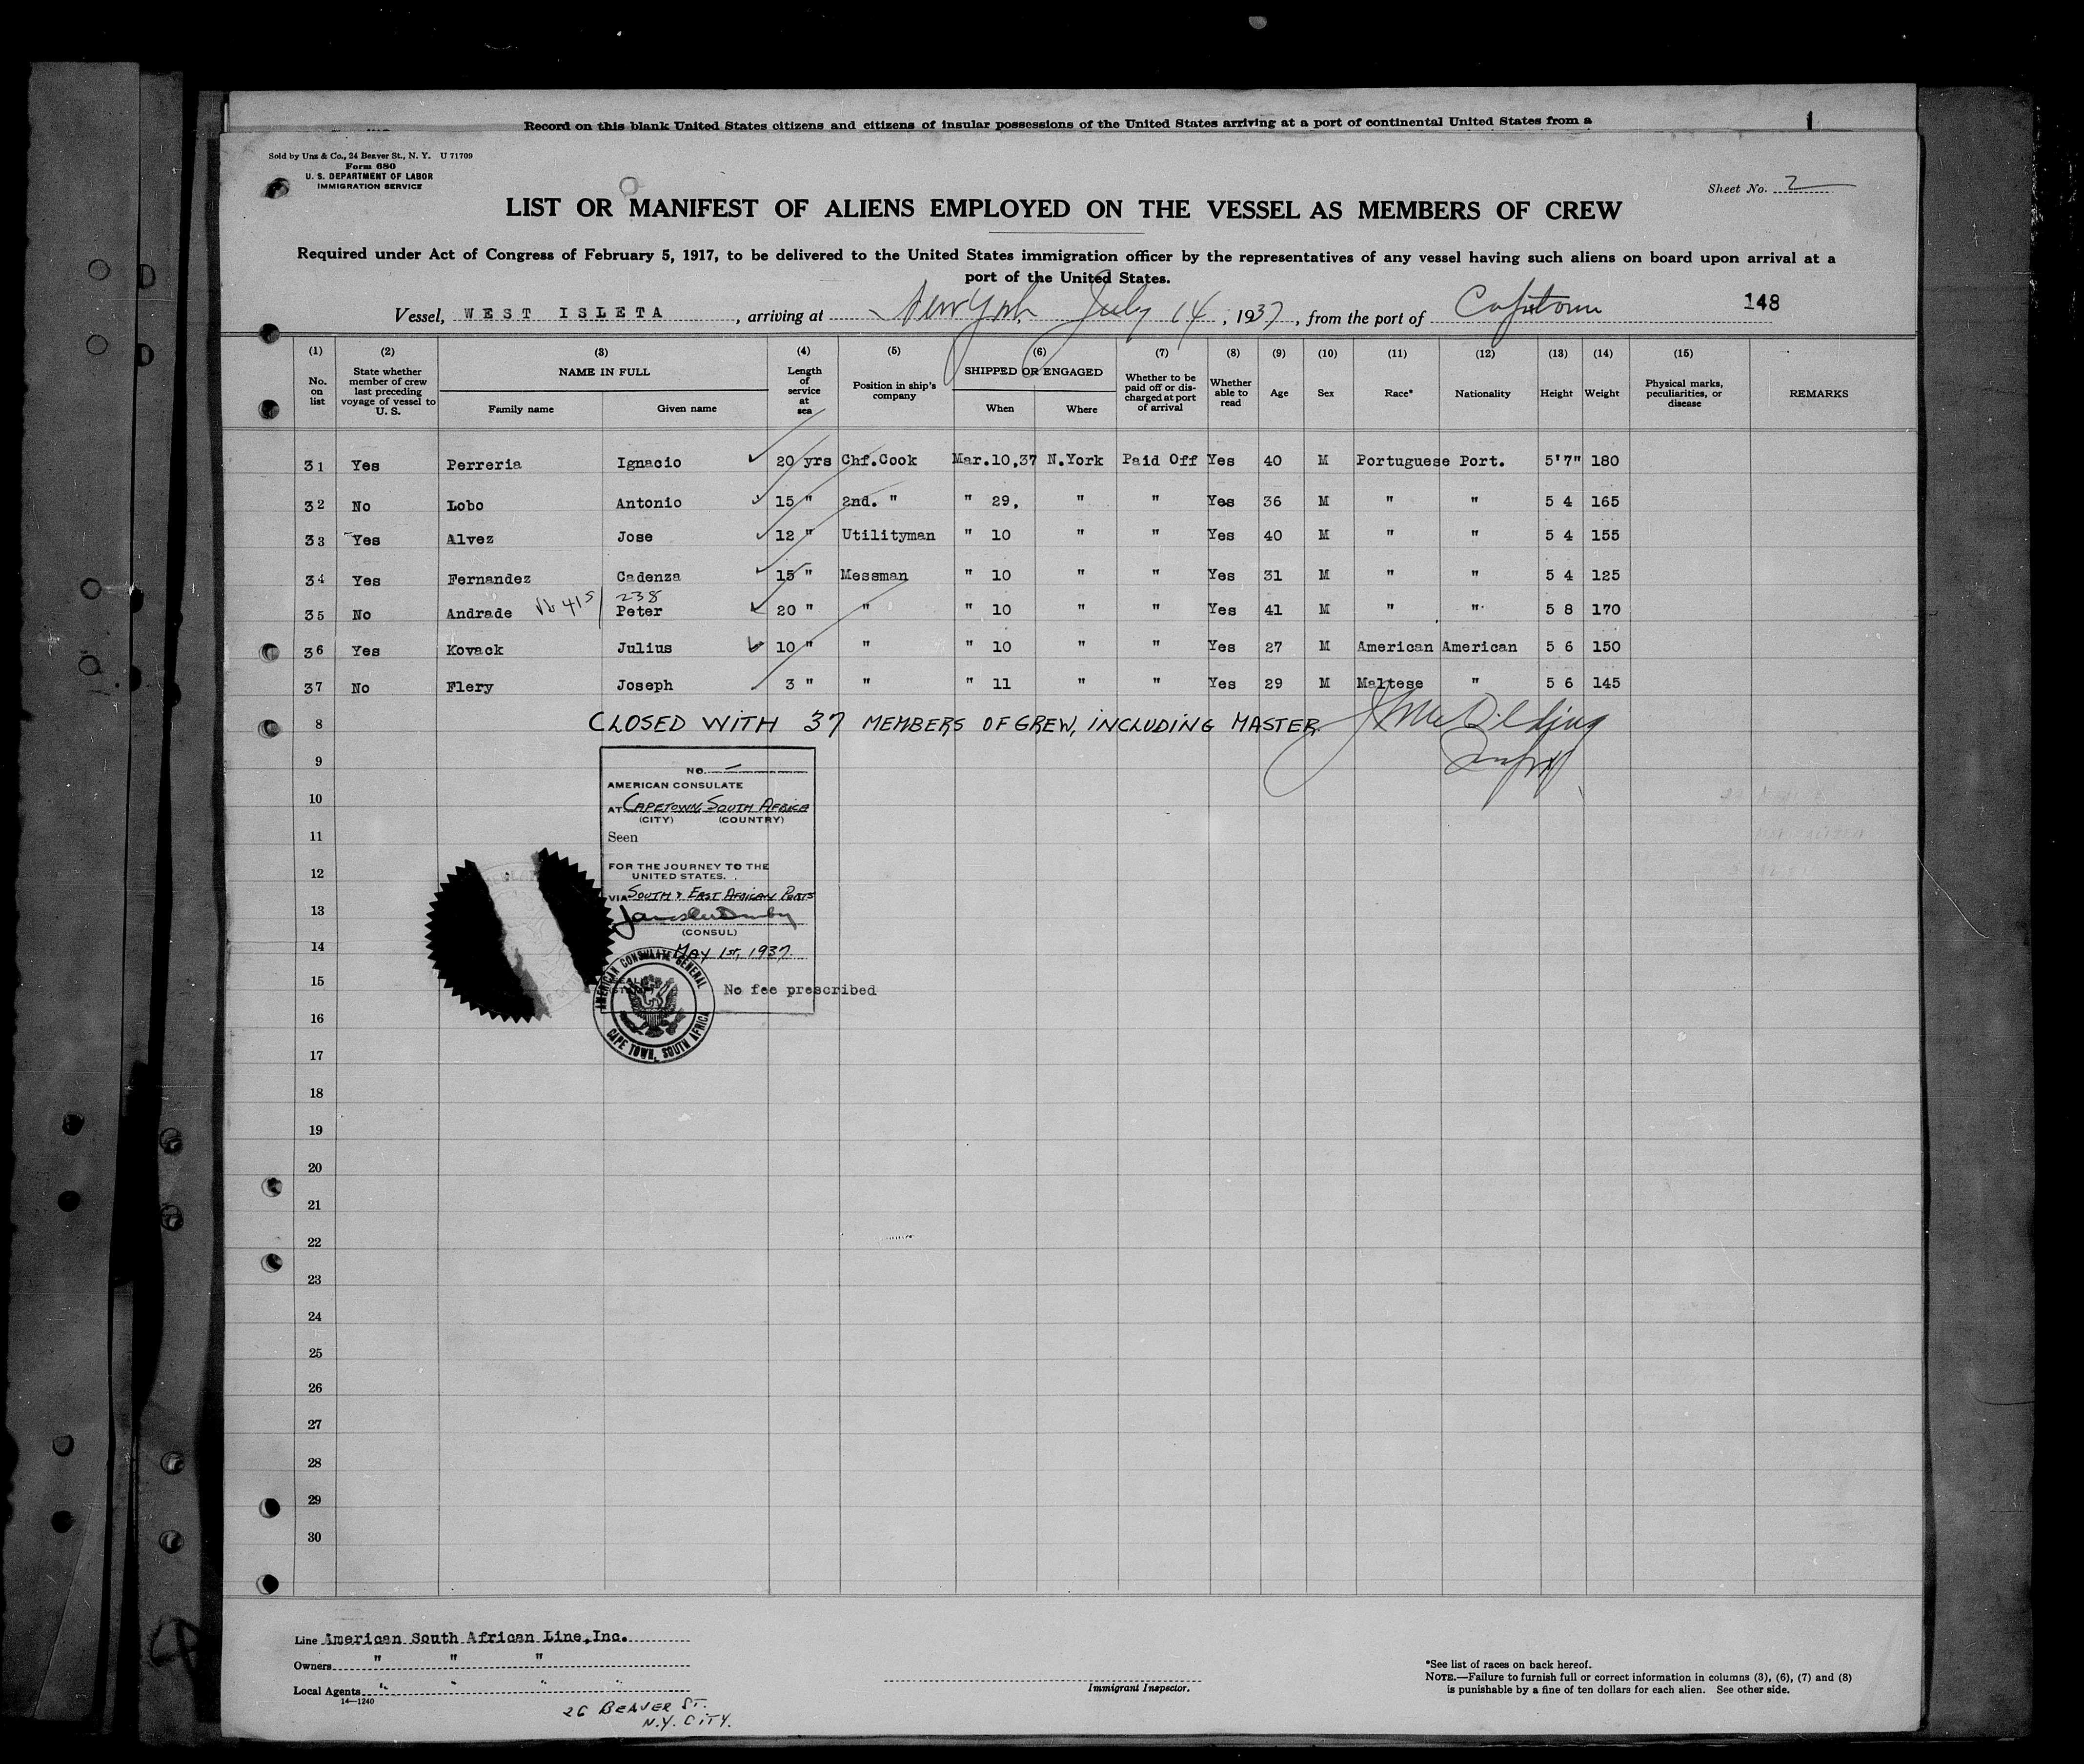 Record on this blank United States citizens and citizens of insular possessions of the United States arriving at a port of continental United States from a
Sold by Unz & Co., 24 Beaver St., N. Y. U 71709
Form 680
U. S. DEPARTMENT OF LABOR
IMMIGRATION SERVICE
Sheet No. 2
LIST OR MANIFEST OF ALIENS EMPLOYED ON THE VESSEL AS MEMBERS OF CREW
Required under Act of Congress of February 5, 1917, to be delivered to the United States immigration officer by the representatives of any vessel having such aliens on board upon arrival at a
port of the United States.
Vessel, WEST ISLETA, arriving at New York, July 14, 1937, from the port of Capetown 148
(1) (2) (3) (4) (5) (6) (7) (8) (9) (10) (11) (12) (13) (14) (15)
No. on list State whether member of crew last preceding voyage of vessel to U. S. NAME IN FULL Family name Given name Length of service at sea Position in ship's company SHIPPED OR ENGAGED When Where Whether to be paid off or discharged at port of arrival Whether able to read Age Sex Race* Nationality Height Weight Physical marks, peculiarities, or disease REMARKS
31 Yes Perreria Ignacio 20 yrs Chf.Cook Mar.10,37 N.York Paid Off Yes 40 M Portuguese Port. 5'7" 180
32 No Lobo Antonio 15 " 2nd. " " 29, " " Yes 36 M " " 5 4 165
33 Yes Alvez Jose 12 " Utilityman " 10 " " Yes 40 M " " 5 4 155
34 Yes Fernandez Cadenza 15 " Messman " 10 " " Yes 31 M " " 5 4 125
238
35 No Andrade 415 Peter 20 " " " 10 " " Yes 41 M " " 5 8 170
36 Yes Kovack Julius 10 " " " 10 " " Yes 27 M American American 5 6 150
37 No Flery Joseph 3 " " " 11 " " Yes 29 M Maltese " 5 6 145
8 CLOSED WITH 37 MEMBERS OF CREW, INCLUDING MASTER
9
NO.
AMERICAN CONSULATE
10
AT CAPETOWN, SOUTH AFRICA
(CITY) (COUNTRY)
11
Seen
12
FOR THE JOURNEY TO THE
UNITED STATES.
VIA SOUTH & EAST AFRICAN PORTS
13
(CONSUL)
14
MAY 1st, 1937.
AMERICAN CONSULATE GENERAL
15
No fee prescribed
16
CAPE TOWN, SOUTH AFRICA
17
18
19
20
21
22
23
24
25
26
27
28
29
30
Line American South African Line,Inc.
Owners " " "
Local Agents " " " "
14—1240
26 BEAVER ST.
N.Y. CITY.
Immigrant Inspector.
*See list of races on back hereof.
NOTE.—Failure to furnish full or correct information in columns (3), (6), (7) and (8)
is punishable by a fine of ten dollars for each alien. See other side.